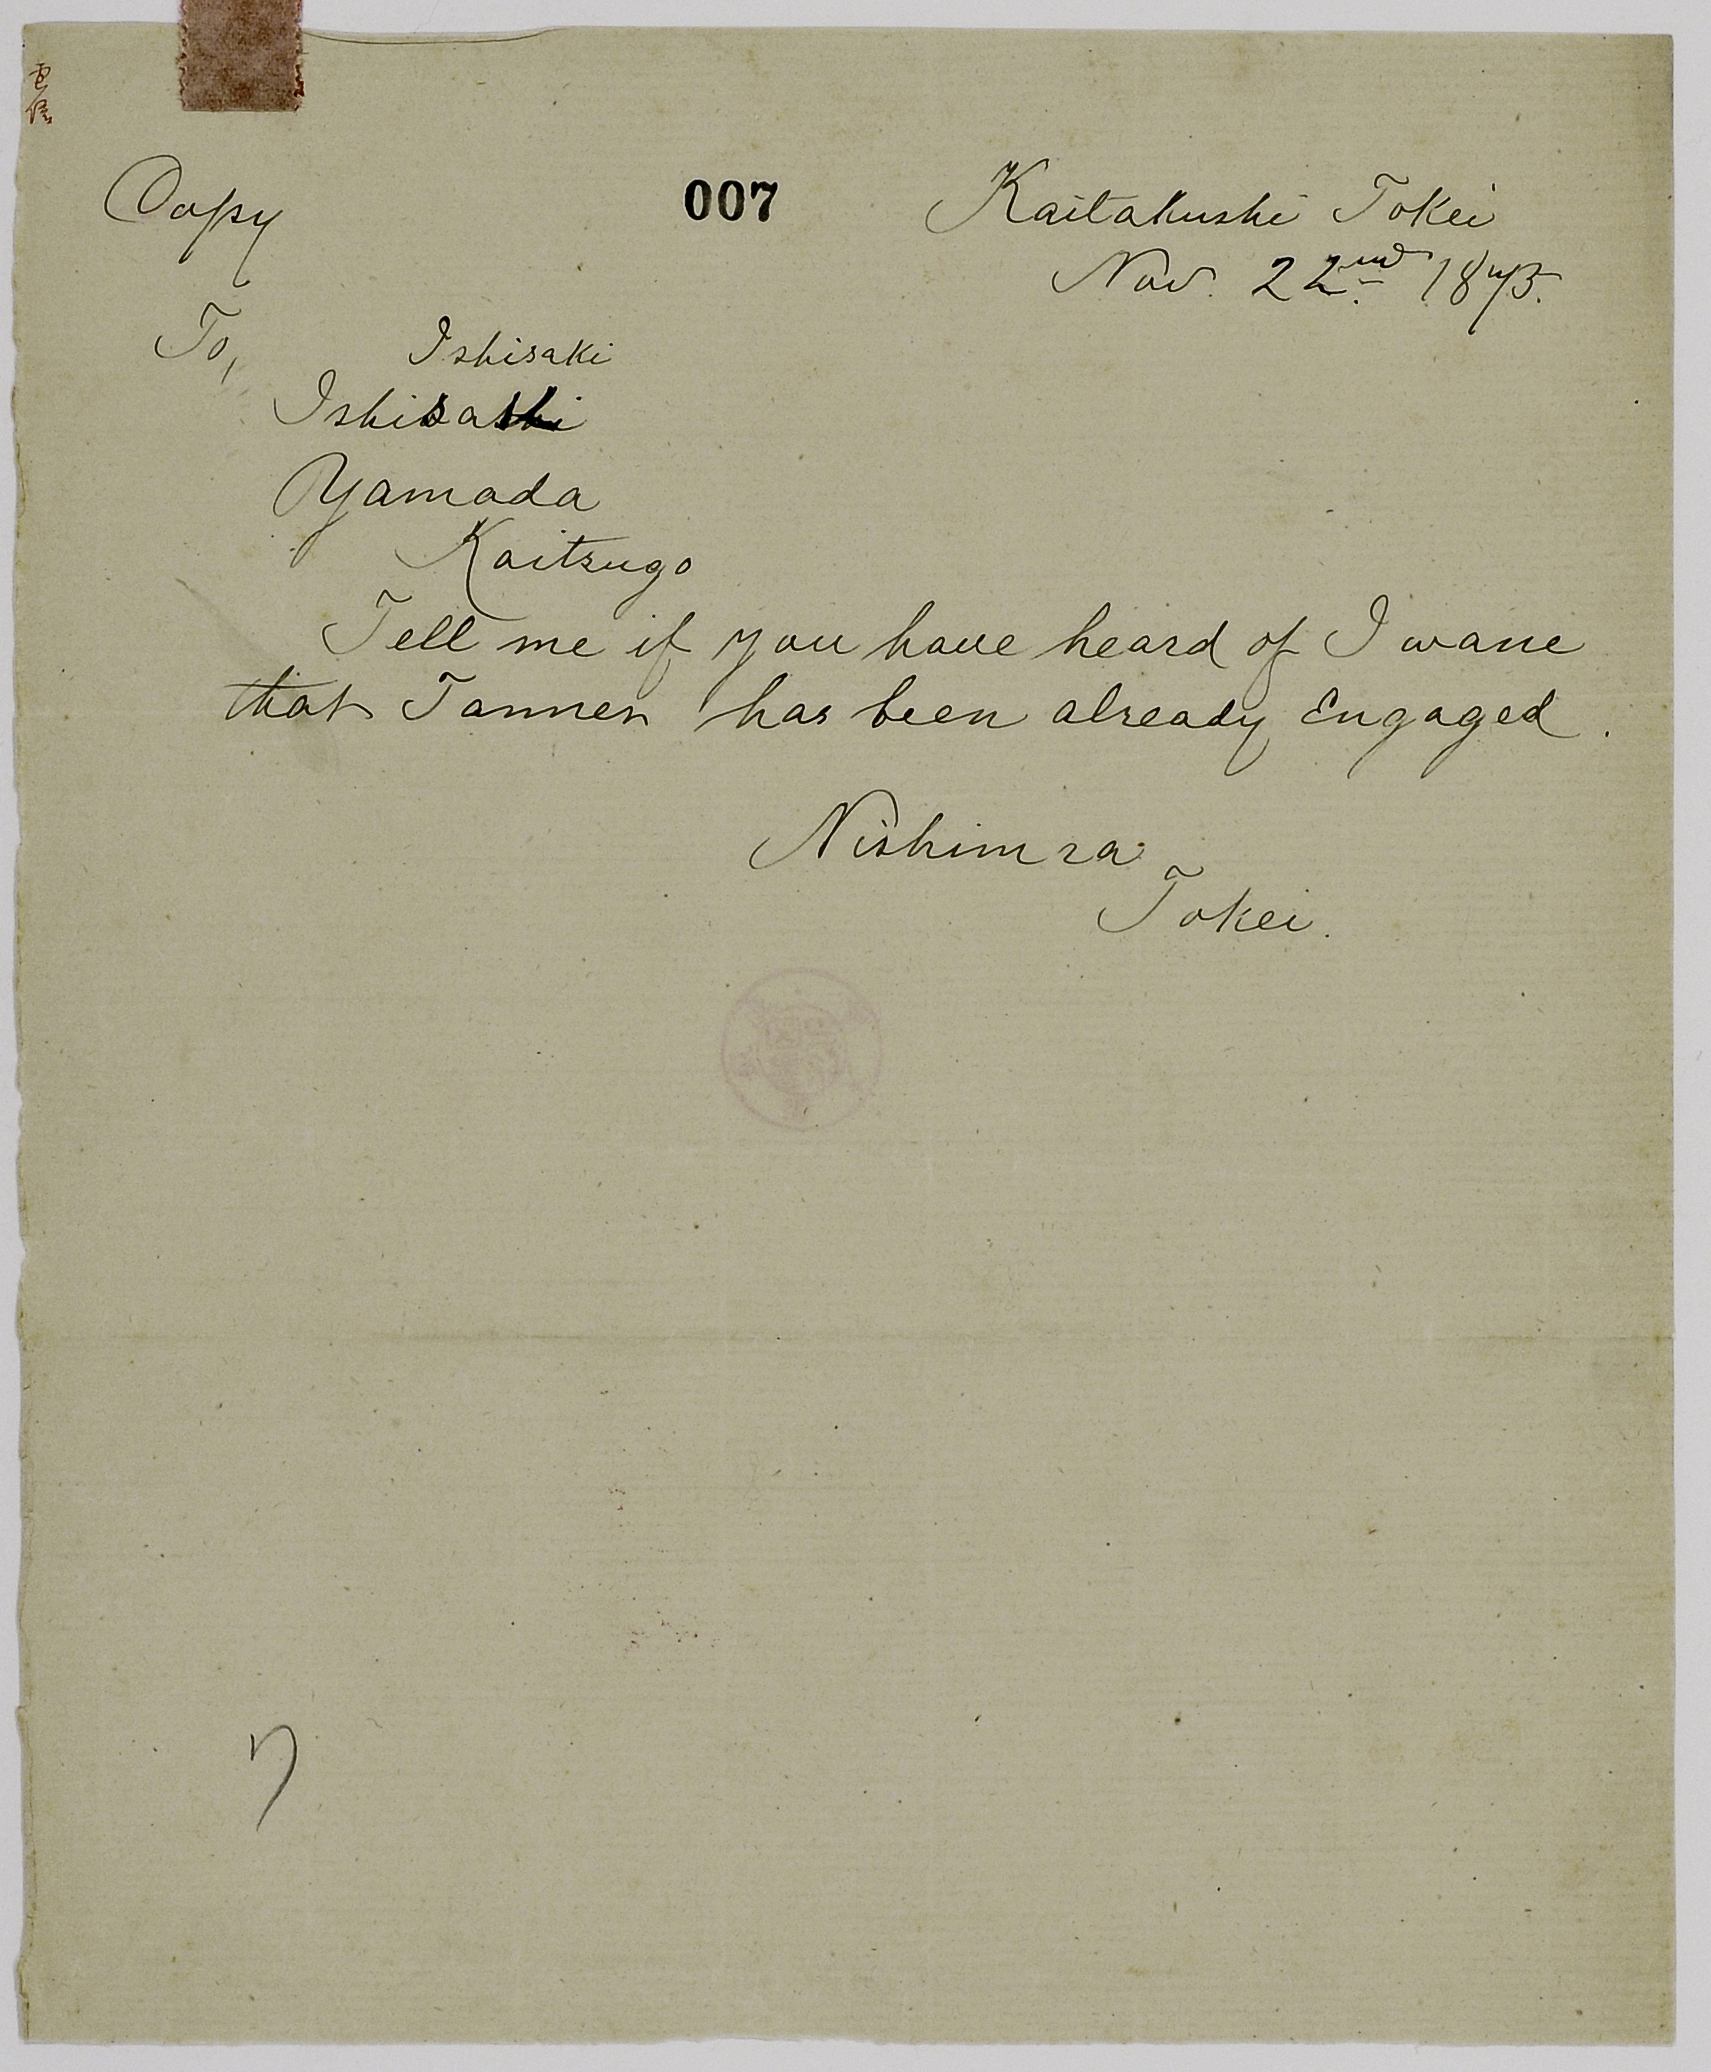 電信
Copy
007
Kaitakushi Tokei
Nov. 22nd 1873.
To,
Ishisaki
Yamada
Kaitsugo
Tell me if you have heard of Iwane
that Tanner has been already Engaged.
Nishimra
Tokei.
7